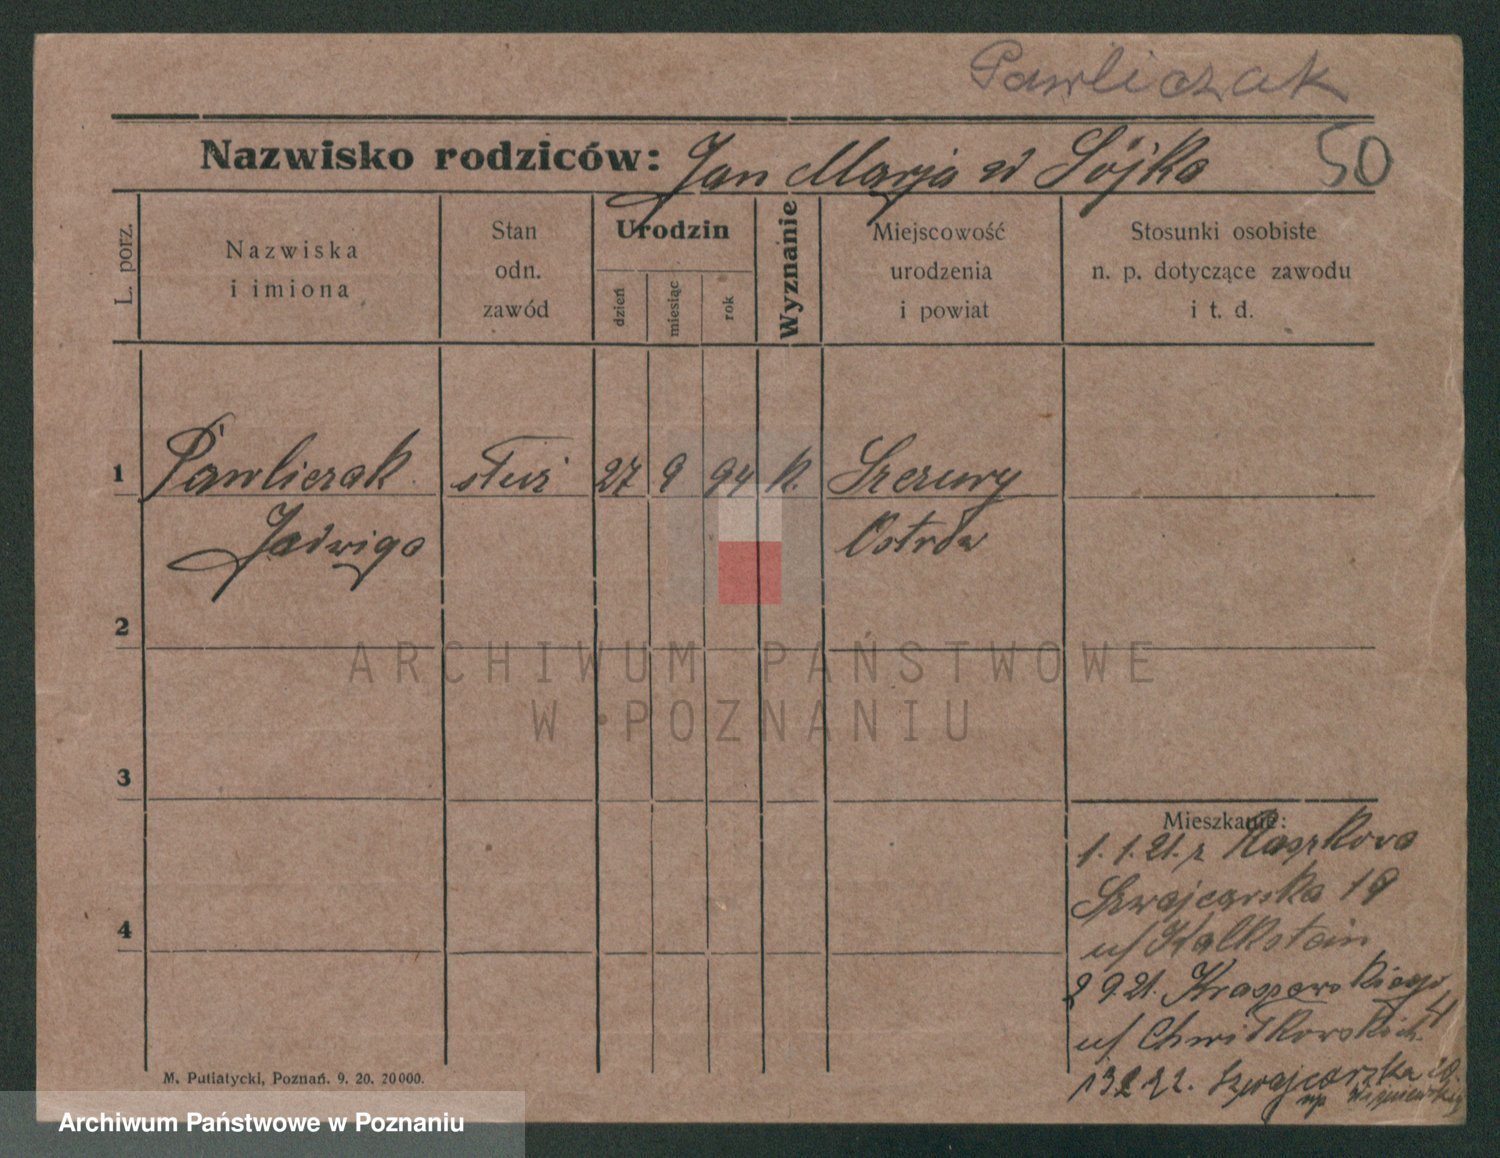 Pawliczak
Nazwisko rodziców: Jan Marja zd Sójka 50
L. porz.
Nazwiska
i imiona
Stan
odn.
zawód
Urodzin
dzień
miesiąc
rok
Wyznanie
Miejscowość
urodzenia
i powiat
Stosunki osobiste
n. p. dotyczące zawodu
i t. d.
1 Pawliczak służ 27 9 94 k. Szczury
Jadwiga Ostrów
2
ARCHIWUM PAŃSTWOWE
W POZNANIU
3
Mieszkanie:
1.1.21. z Raszkowa
Szwajcarska 19
4
u/ Kalkstein
2 9.21. Kraszewskiego 4
u/ Chwiłkowskich.
13 2 22. Szwajcarska 20.
M. Putiatycki, Poznań. 9. 20. 20000.
Archiwum Państwowe w Poznaniu